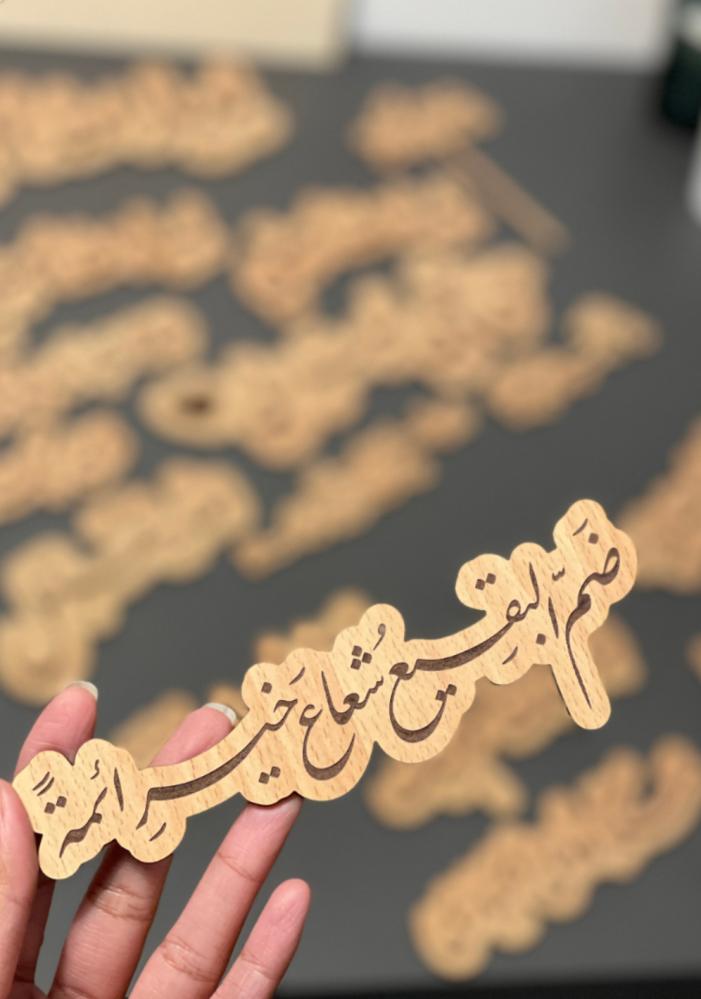 ضمّ البقيع شُعاع خَيرِ ائمةً